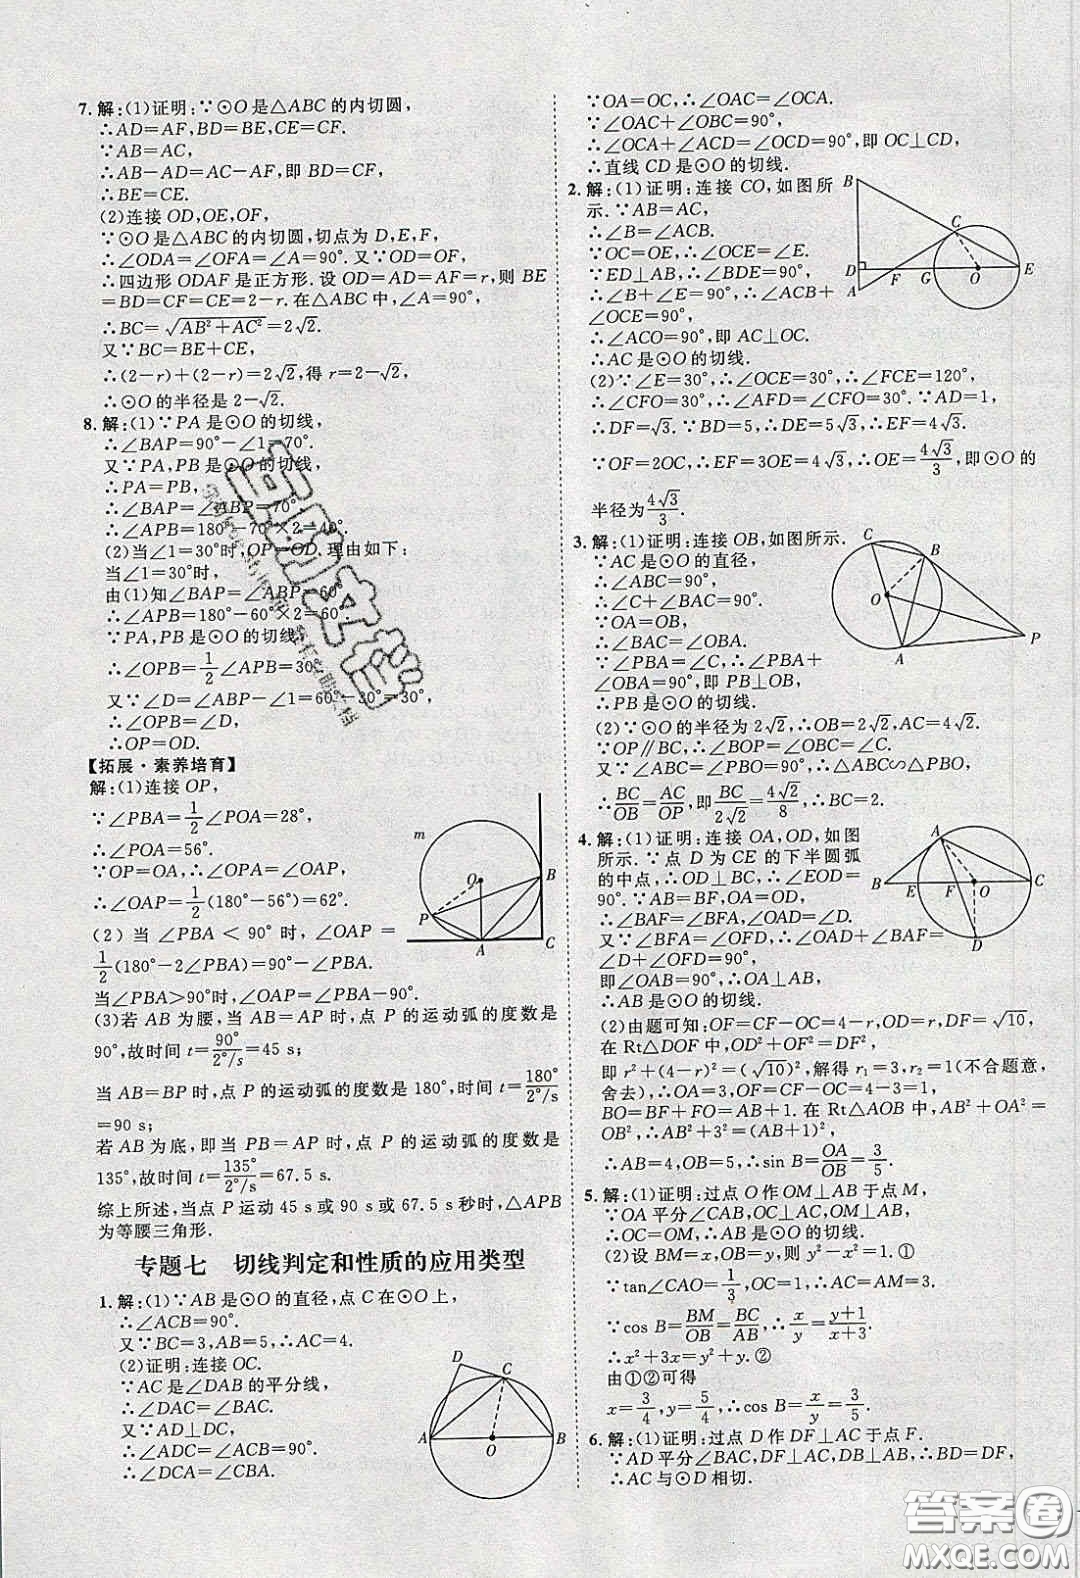 7. 解:(1)证明:∵⊙O是△ABC的内切圆,
∴AD=AF,BD=BE,CE=CF.
∵AB=AC,
∴AB-AD=AC-AF,即BD=CF,
∴BE=CE.
(2)连接OD,OE,OF,
∵⊙O是△ABC的内切圆,切点为D,E,F,
∴∠ODA=∠OFA=∠A=90°.又∵OD=OF,
∴四边形ODAF是正方形.设OD=AD=AF=r,则BE
=BD=CF=CE=2-r.在△ABC中,∠A=90°,
∴BC=√(AB²+AC²)=2√2.
又∵BC=BE+CE,
∴(2-r)+(2-r)=2√2,得r=2-√2.
∴⊙O的半径是2-√2.
8. 解:(1)∵PA是⊙O的切线,
∴∠BAP=90°-∠1=70°.
又∵PA,PB是⊙O的切线,
∴PA=PB,
∴∠BAP=∠ABP=70°
∴∠APB=180°-70°×2=40°.
(2)当∠1=30°时,OP=OD.理由如下:
当∠1=30°时,
由(1)知∠BAP=∠ABP=60°
∴∠APB=180°-60°×2=60°
∵PA,PB是⊙O的切线
∴∠OPB=1/2∠APB=30°
又∵∠D=∠ABP-∠1=60°-30°=30°,
∴∠OPB=∠D,
∴OP=OD.
【拓展·素养培育】
解:(1)连接OP,
∵∠PBA=1/2∠POA=28°,
∴∠POA=56°.
∵OP=OA,∴∠OPA=∠OAP,
∴∠OAP=1/2(180°-56°)=62°.
(2)当∠PBA<90°时,∠OAP=
1/2(180°-2∠PBA)=90°-∠PBA.
当∠PBA>90°时,∠OAP=∠PBA-90°.
(3)若AB为腰,当AB=AP时,点P的运动弧的度数是
90°,故时间t=90°/2°/s=45 s;
当AB=BP时,点P的运动弧的度数是180°,时间t=180°/2°/s
=90 s;
若AB为底,即当PB=AP时,点P的运动弧的度数是
135°,故时间t=135°/2°/s=67.5 s.
综上所述,当点P运动45 s或90 s或67.5秒时,△APB
为等腰三角形.
m
O
B
P
A
C
专题七 切线判定和性质的应用类型
1. 解:(1)∵AB是⊙O的直径,点C在⊙O上,
∴∠ACB=90°.
又∵BC=3,AB=5,∴AC=4.
(2)证明:连接OC.
∵AC是∠DAB的平分线,
∴∠DAC=∠BAC.
又∵AD⊥DC,
∴∠ADC=∠ACB=90°.
∴∠DCA=∠CBA.
D
C
A
O
B
∵OA=OC,∴∠OAC=∠OCA.
∵∠OAC+∠OBC=90°,
∴∠OCA+∠ACD=∠OCD=90°,即OC⊥CD,
∴直线CD是⊙O的切线.
2. 解:(1)证明:连接CO,如图所
示.∵AB=AC,
∴∠B=∠ACB.
∵OC=OE,∴∠OCE=∠E.
∵ED⊥AB,∴∠BDE=90°.
∴∠B+∠E=90°,∴∠ACB+
∠OCE=90°,
∴∠ACO=90°,即AC⊥OC.
∴AC是⊙O的切线.
(2)∵∠E=30°,∴∠OCE=30°,∴∠FCE=120°,
∴∠CFO=30°,∴∠AFD=∠CFO=30°.∵AD=1,
∴DF=√3.∵BD=5,∴DE=5√3,∴EF=4√3.
∵OF=2OC,∴EF=3OE=4√3,∴OE=4√3/3,即⊙O的
半径为4√3/3.
B
C
D
F
G
O
E
A
3. 解:(1)证明:连接OB,如图所示.
∵AC是⊙O的直径,
∴∠ABC=90°,
∴∠C+∠BAC=90°.
∵OA=OB,
∴∠BAC=∠OBA.
∵∠PBA=∠C,∴∠PBA+
∠OBA=90°,即PB⊥OB,
∴PB是⊙O的切线.
(2)∵⊙O的半径为2√2,∴OB=2√2,AC=4√2.
∵OP∥BC,∴∠BOP=∠OBC=∠C.
又∵∠ABC=∠PBO=90°,∴△ABC∽△PBO,
∴BC/OB=AC/OP,即BC/2√2=4√2/8,∴BC=2.
C
B
O
A
P
4. 解:(1)证明:连接OA,OD,如图
所示.∵点D为CE的下半圆弧
的中点,∴OD⊥BC,∴∠EOD=
90°.∵AB=BF,OA=OD,
∴∠BAF=∠BFA,∠OAD=∠D.
又∵∠BFA=∠OFD,∴∠OAD+∠BAF=
∠D+∠BFA=90°,
即∠OAB=90°,∴OA⊥AB,
∴AB是⊙O的切线.
(2)由题可知:OF=CF-OC=4-r,OD=r,DF=√10,
在Rt△DOF中,OD²+OF²=DF²,
即r²+(4-r)²=(√10)²,解得r₁=3,r₂=1(不合题意,
舍去),∴OA=3,OF=CF-OC=4-3=1,
BO=BF+FO=AB+1.在Rt△AOB中,AB²+OA²=
OB²,∴AB²+3²=(AB+1)²,
∴AB=4,OB=5,∴sin B=OA/OB=3/5.
A
B
E
F
O
C
D
5. 解:(1)证明:过点O作OM⊥AB于点M,
∵OA平分∠CAB,OC⊥AC,OM⊥AB,
∴OC=OM,∴AB是⊙O的切线.
(2)设BM=x,OB=y,则y²-x²=1.①
∵tan∠CAO=1/3,∴AC=AM=3,
∵cos B=BM/OB=BC/AB,∴x/y=(y+1)/(x+3).
∴x²+3x=y²+y.②
由①②可得
x=3/4,y=5/4,∴cos B=x/y=3/5.
6. 解:(1)证明:过点D作DF⊥AC于点F.
∵AD平分∠BAC,DF⊥AC,DB⊥AB,∴BD=DF,
∴AC与⊙D相切.
答案圈
MXQE.COM